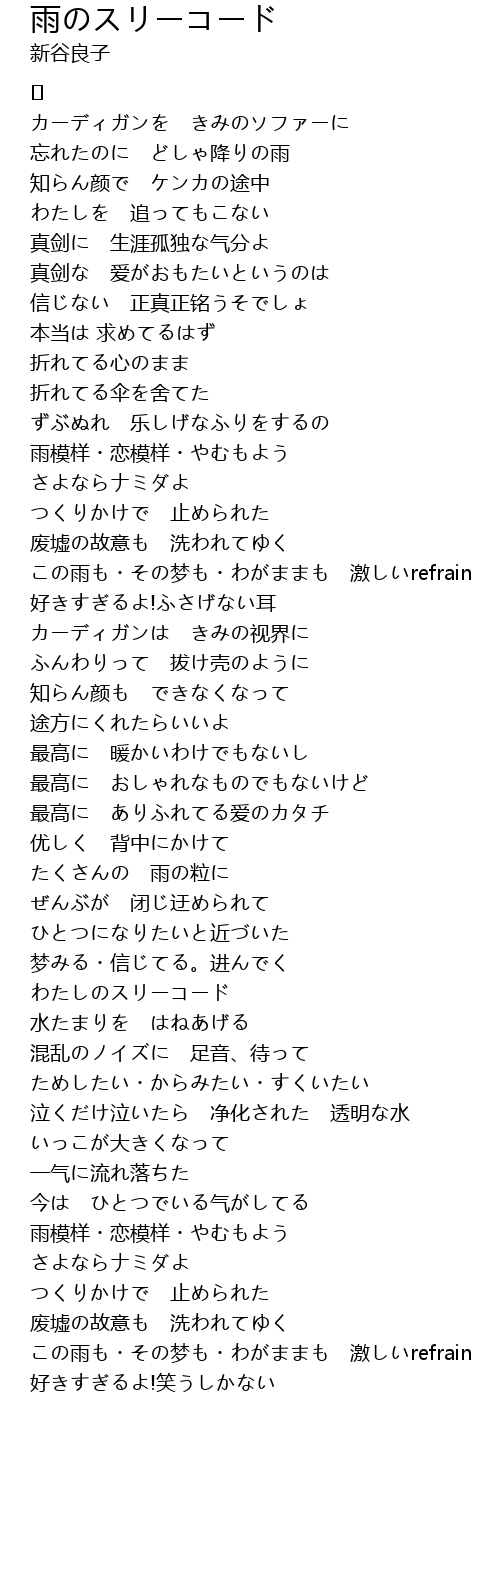 雨のスリーコード
新谷良子
▯
カーディガンを　きみのソファーに
忘れたのに　どしゃ降りの雨
知らん颜で　ケンカの途中
わたしを　追ってもこない
真剑に　生涯孤独な气分よ
真剑な　爱がおもたいというのは
信じない　正真正铭うそでしょ
本当は 求めてるはず
折れてる心のまま
折れてる伞を舍てた
ずぶぬれ　乐しげなふりをするの
雨模样・恋模样・やむもよう
さよならナミダよ
つくりかけで　止められた
废墟の故意も　洗われてゆく
この雨も・その梦も・わがままも　激しいrefrain
好きすぎるよ!ふさげない耳
カーディガンは　きみの视界に
ふんわりって　拔け壳のように
知らん颜も　できなくなって
途方にくれたらいいよ
最高に　暖かいわけでもないし
最高に　おしゃれなものでもないけど
最高に　ありふれてる爱のカタチ
优しく　背中にかけて
たくさんの　雨の粒に
ぜんぶが　闭じ迂められて
ひとつになりたいと近づいた
梦みる・信じてる。进んでく
わたしのスリーコード
水たまりを　はねあげる
混乱のノイズに　足音、待って
ためしたい・からみたい・すくいたい
泣くだけ泣いたら　净化された　透明な水
いっこが大きくなって
一气に流れ落ちた
今は　ひとつでいる气がしてる
雨模样・恋模样・やむもよう
さよならナミダよ
つくりかけで　止められた
废墟の故意も　洗われてゆく
この雨も・その梦も・わがままも　激しいrefrain
好きすぎるよ!笑うしかない